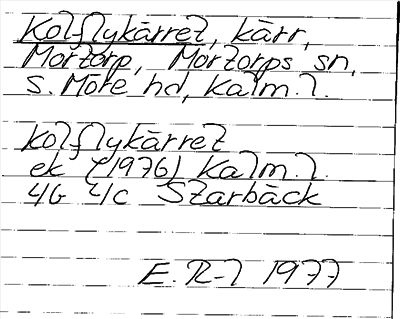 Kolflykärret, kärr,
Mortorp, Mortorps sn,
S. Möre hd, Kalm. l.
Kolflykärret
ek (1976) Kalm. l.
4G 4c Starbäck
E. R-l 1977